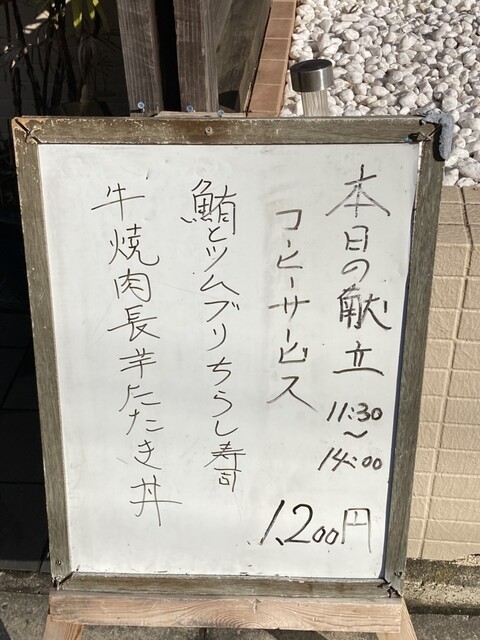 本日の献立
11:30
～
14:00
コーヒーサービス
鮪とツムブリちらし寿司
牛焼肉長芋たたき丼
1,200円